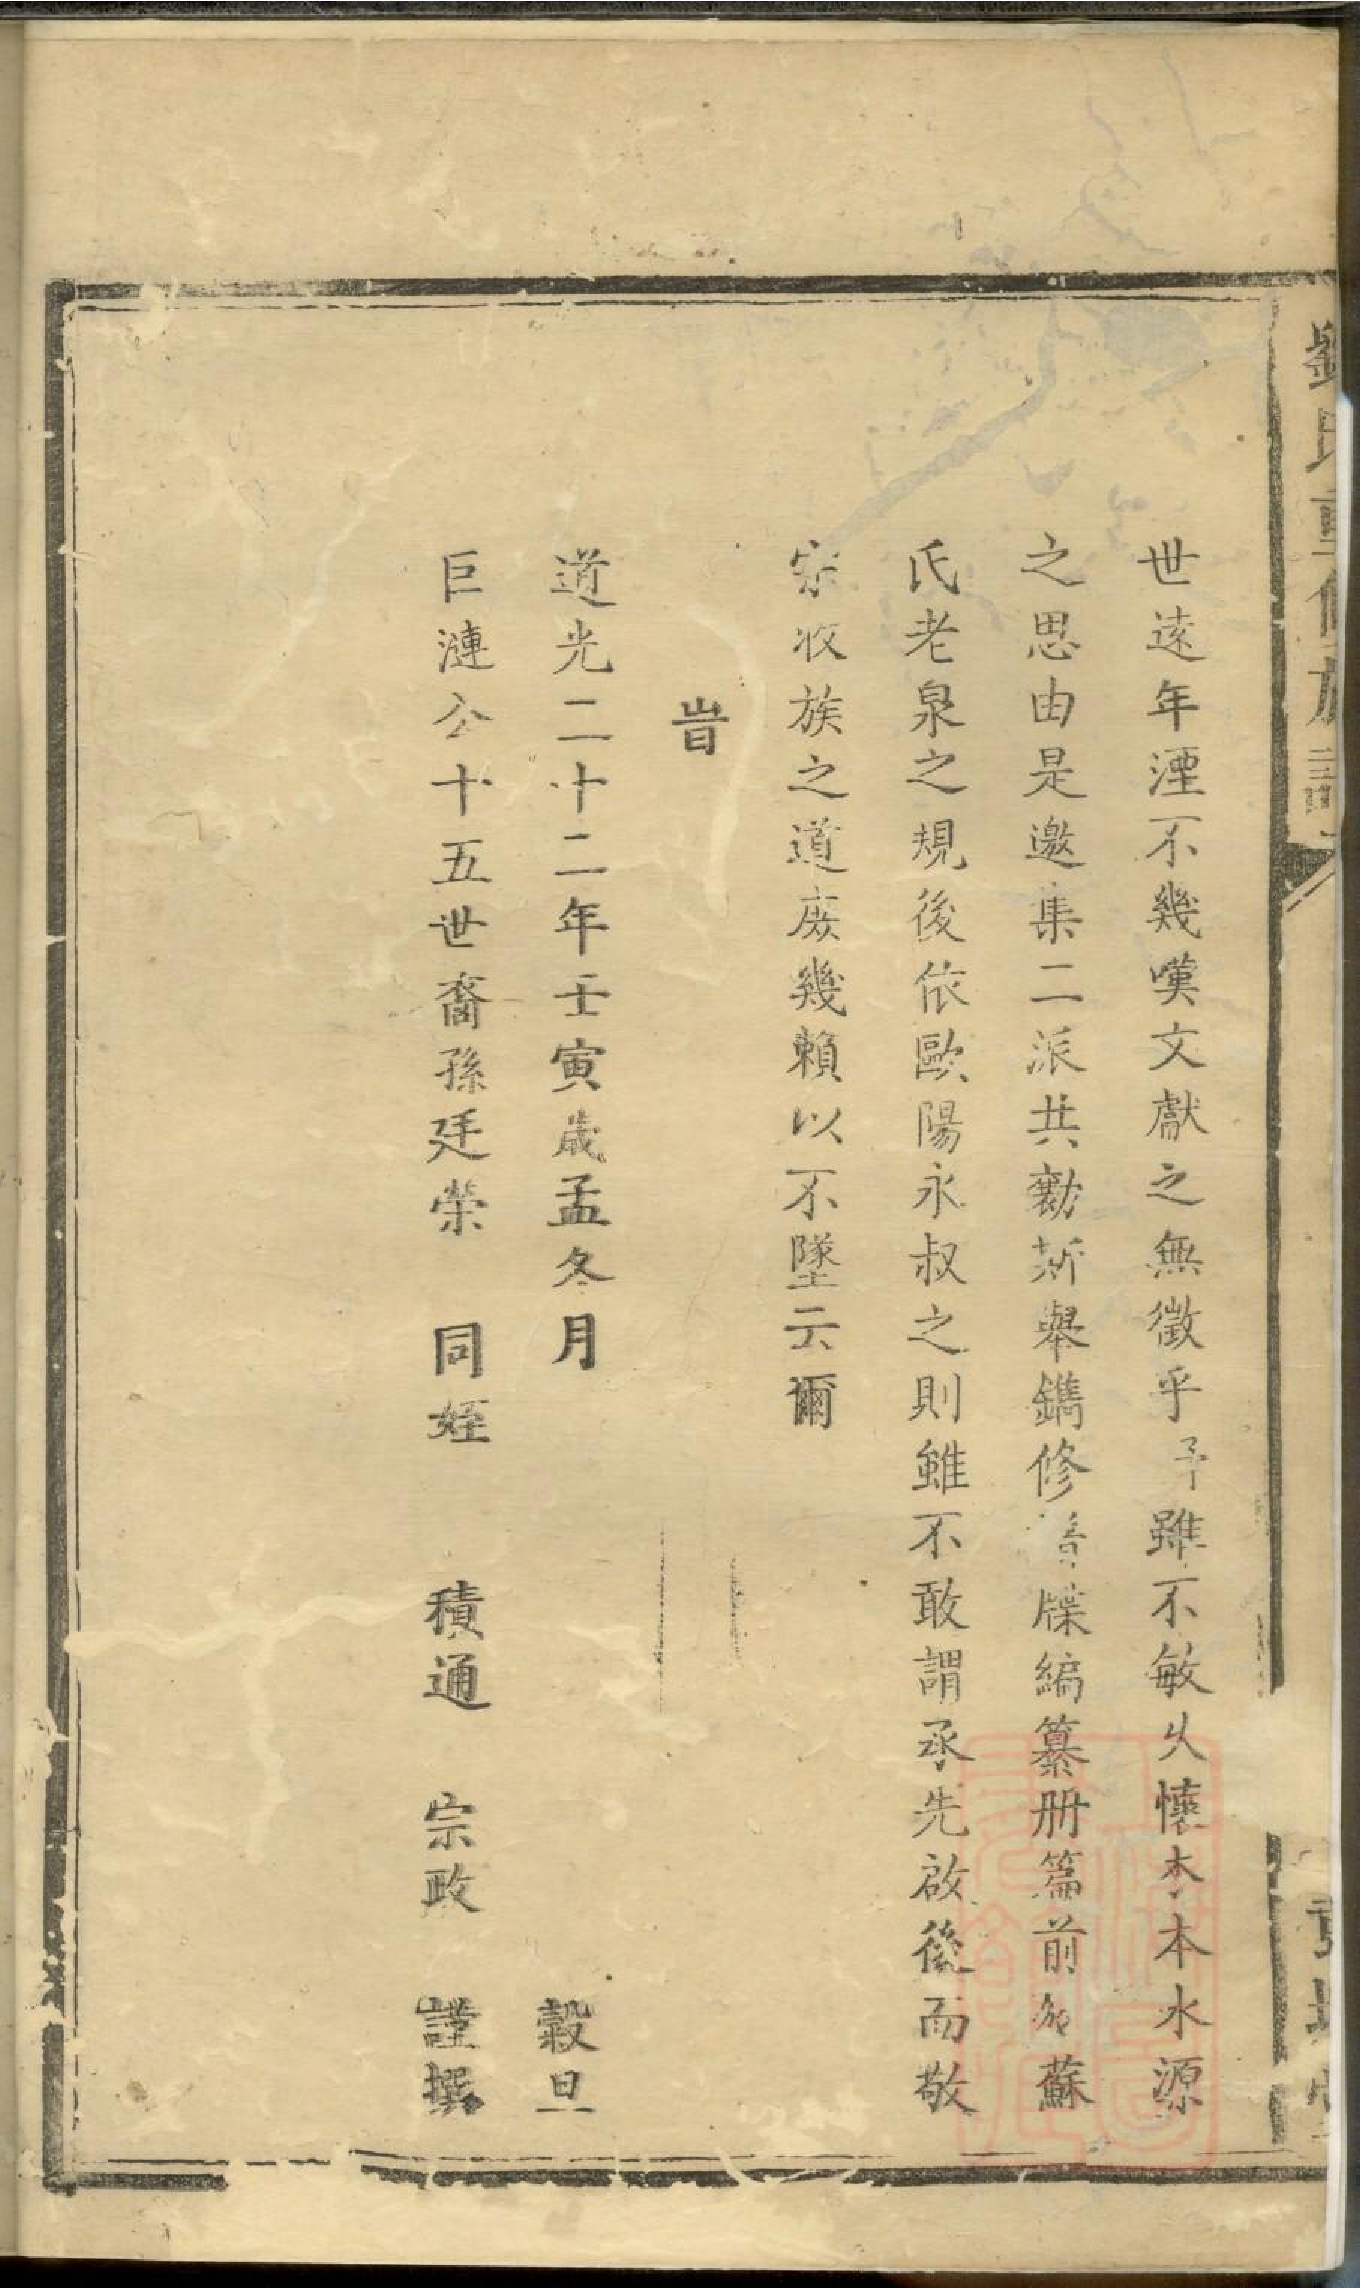 世遠年湮不幾嘆文獻之無徵乎予雖不敏久懷木本水源
之思由是邀集二派共勷斯舉鐫修譜牒編纂册篇前從蘇
氏老泉之規後依歐陽永叔之則雖不敢謂承先啟後而敬
宗收族之道庶幾賴以不墜云爾
旹
道光二十二年壬寅歲孟冬月 穀旦
巨漣公十五世裔孫廷榮 同姪 積通 宗政 謹撰